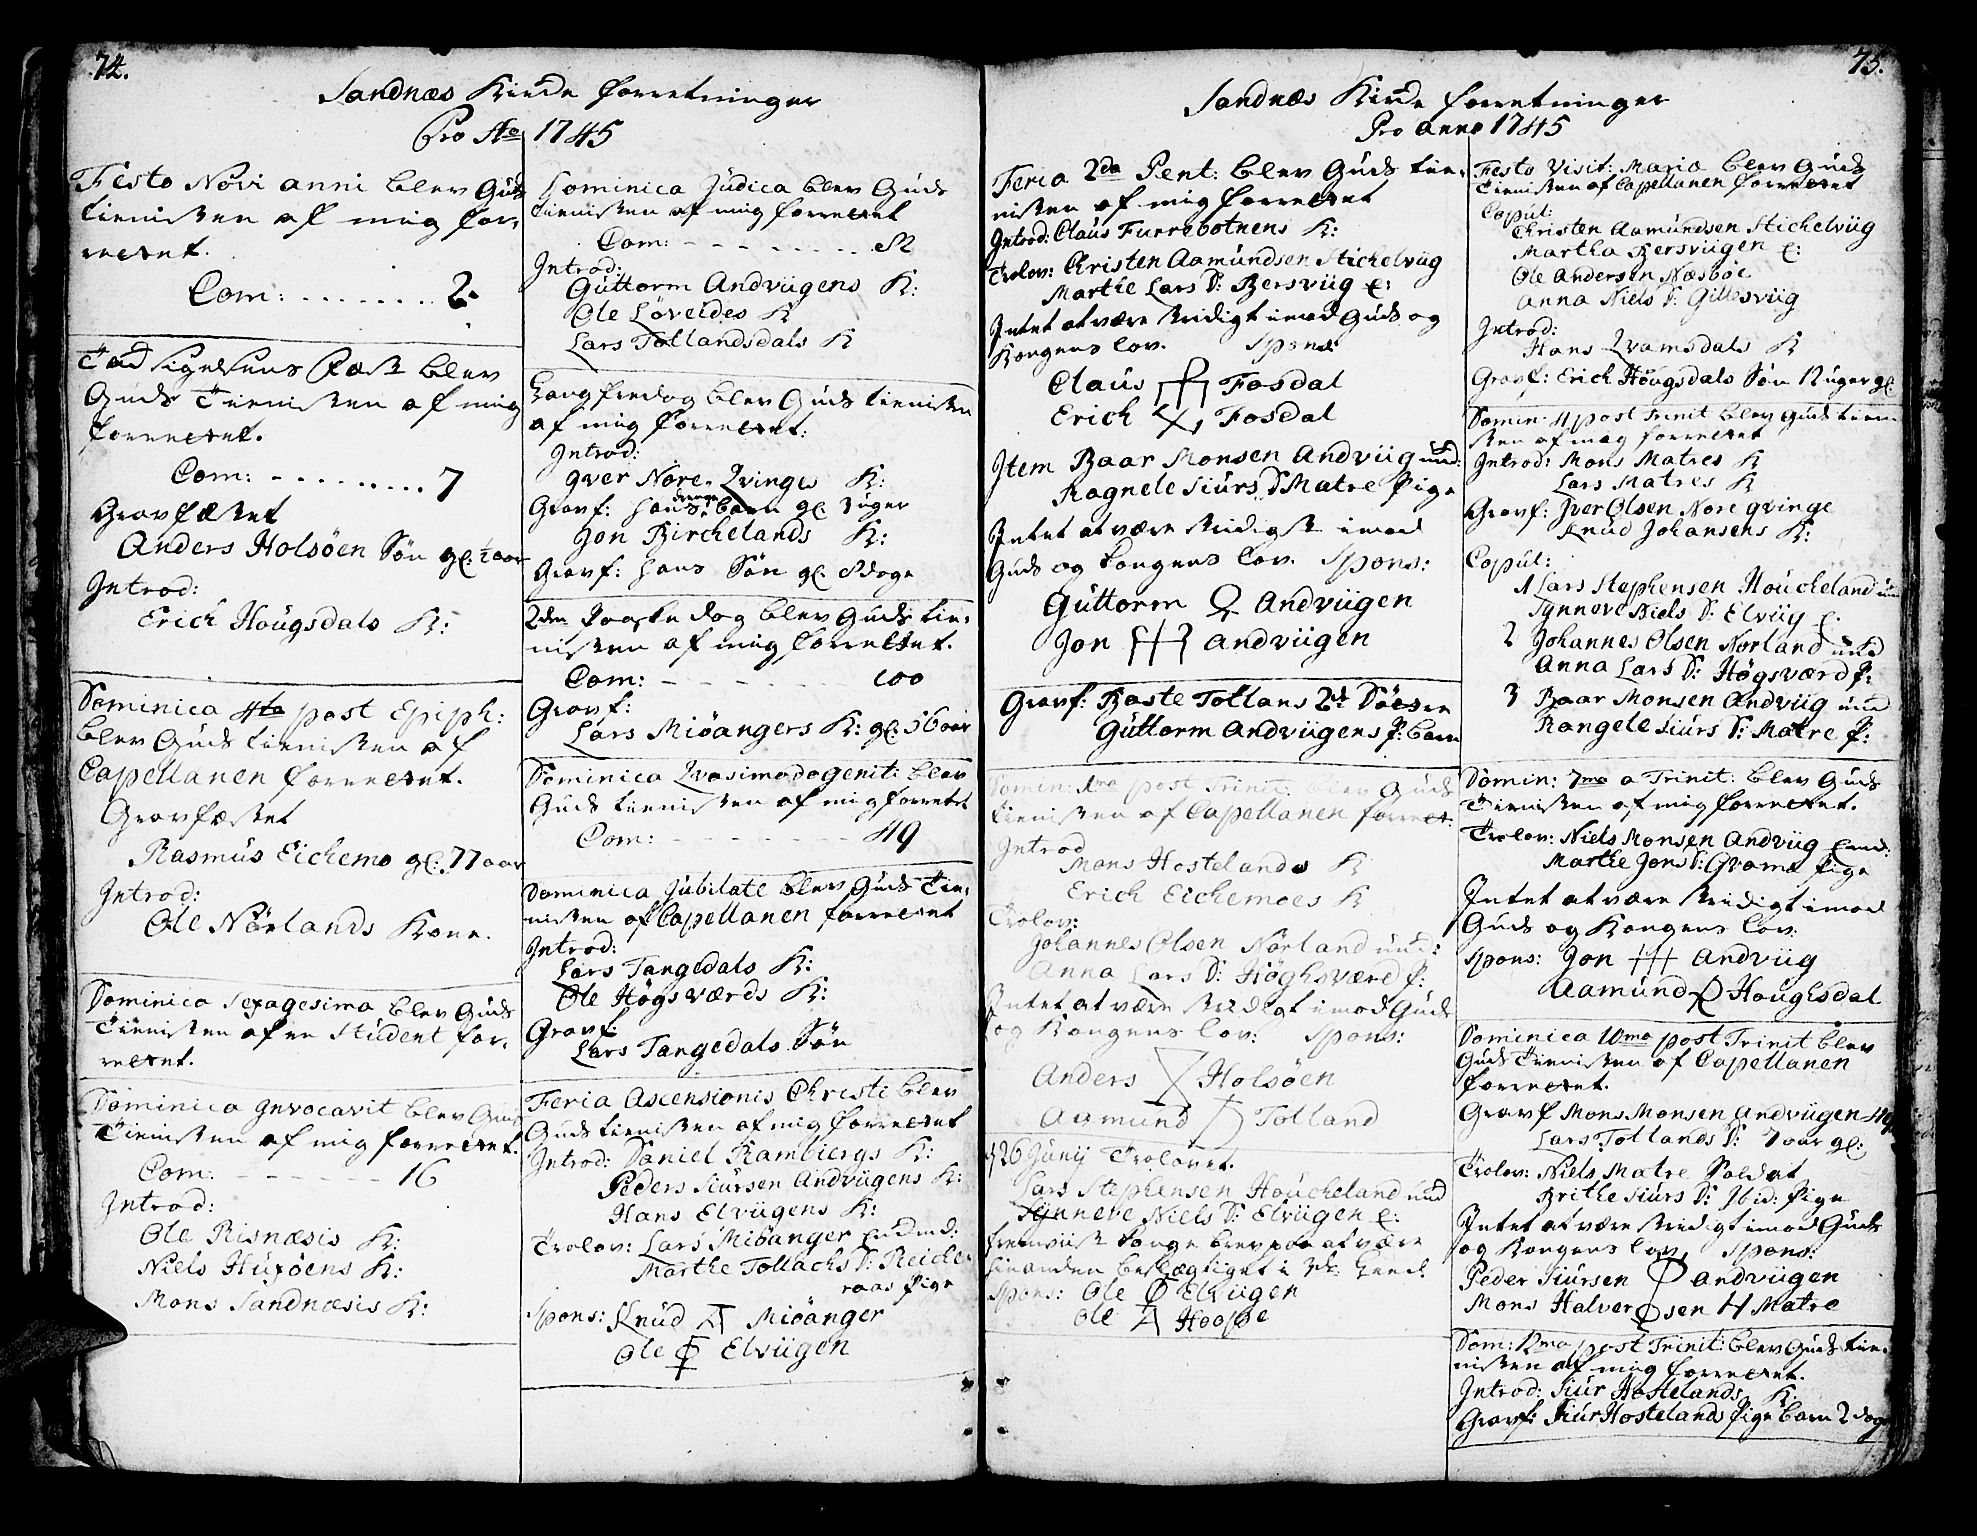 74.
Sandnæs Kirche forretninger
Pro Ao 1745
Festo Novi anni blev Guds
tienisten af mig for,
rettet.
Com: . . . . . . . . 2.
Tachsigelsens Fæst blev
Guds Tienisten af mig
forrettet.
Com: - . . . . . . . . 7
Gravfæstet
Anders Holsöen Sön gl: 1/2 aar
Introd:
Erich Hougsdals K:
Dominica 4ta post Epiph:
blev Guds tienisten af
Capellanen forrettet.
Gravfæstet
Rasmus Eichemo gl: 77 aar
Introd:
Ole Nörlands Kone.
Dominica Sexagesima blev Guds
Tienisten af en Student for,
rettet.
Dominica Invocavit blev Guds
Tienisten af mig forrettet.
Com: - - - - - - 16
Introd:
Ole Risnæsis K:
Niels Huxöens K:
Mons Sandnæsis K:
Dominica Judica blev Guds
tienisten af mig forrettet
Com: - - - - - - - . . . 82
Introd:
Guttorm Andviigens K:
Ole Löveides K
Lars Tollandsdals K
Langfredag blev Guds tienisten
af mig forrettet:
Introd:
Iver Nore Qvinges K:
Gravf: Hans drenge barn gl. 3 uger
Jon Birchelands K:
Gravf: Hans Sön gl. 8 dage
2den Paaske dag blev Guds tie,
nisten af mig forrettet.
Com: - - - - - - 100
Gravf:
Lars Miöangers K: gl: 56 aar
Dominica Qvasimodogenit: blev
Guds tienisten af mig forrettet
Com: - - - - - - - - 49
Dominica Jubilate blev Guds Tie,
nisten af Capellanen forrettet
Introd:
Lars Tangedals K:
Ole Högsværds K:
Gravf:
Lars Tangedals Sön
Feria Ascensionis Christi blev
Guds tienisten af mig forrettet
Introd: Daniel Rambiergs K:
Peders Siursen Andviigens K:
Hans Elviigens K:
Trolov: Lars Miöanger
Marthe Tollachs D: Reiche
raas Pige
Spons: Knud Miöanger
Ole Elviigen
75.
Sandnæs Kirche forretninger
Pro anno 1745
Feria 2da Pent: blev Guds tie,
nisten af mig forrettet
Introd: Claus Furrebotnens K:
Trolov: Christen Aamundsen Stichelviig
Marthe Lars D: Bersviig E:
Intet at være stridigt imod Guds og
Kongens lov. Spons:
Claus Fosdal
Erich Fosdal
Item Baar Monsen Andviig und:
Ragnele Siurs D Matre Pige
Intet at være stridigt imod
Guds og Kongens lov. Spons:
Guttorm Andviigen
Jon Andviigen
Gravf: Baste Tollans 2de
Guttorm Andviigens P: barn
Domin: 1ma post Trinit: blev Guds
tienisten af Capellanen forrett:
Introd
Mons Hostelands K
Erich Eichemoes K
Trolov:
Johannes Olsen Norland und:
Anna Lars D: Höghsværd P:
Intet at være stridigt imod Guds
og Kongens lov: Spons:
Anders Holsöen
Aamund Tolland
d 26 Junij Trolovet.
Lars Stephensen Houcheland und
Synneve Niels D: Elviigen E:
fremviiste Konge brev paa at være
hinanden beslægtiget i 3de Leed.
Spons: Ole Elviigen
Ole Hoope
Festo Visit: Mariæ blev Guds
Tienisten af Capellanen forrettet
Copul:
Christen Aamundsen Stichelviig
Martha Bersviigen E:
Ole Andersen Næsböe
Anna Niels D: Gittesviig
Introd:
Hans Qvamsdals K
Gravf: Erich Hougsdals Sön 12 uger gl:
Domin: 4 post Trinit blev Guds tieni
sten af mig forrettet
Introd: Mons Matres K
Lars Matres K
Gravf: Iver Olsen Nore qvinge
Knud Johansens K:
Copul:
1 Lars Stephensen Houcheland und
Synneve Niels D: Elviig E:
2 Johannes Olsen Norland und
Anna Lars D: Högsværd P:
3 Baar Monsen Andviig und
Rangele Siurs D: Matre P:
Domin: 7ma a Trinit: blev Guds
Tienisten af mig forrettet.
Trolov: Niels Monsen Andviig
Marthe Jons D: Qvame Pige
Intet at være stridigt imod
Guds og Kongens lov:
Spons: Jon Andviig
Aamund Houghsdal
Dominica 10ma post Trinit blev
Guds Tienisten af Capellanen
forrettet.
Gravf Mons Monsen Andviigen
Lars Tollands D: 7 aar gl:
Trolov: Niels Matre Soldat
Brithe Siurs D: Ibid: Pige
Intet at være stridigt imod Guds
og Kongens lov, Spons:
Peder Siursen Andviigen
Mons Halversen Matre
Dom: 12ma post Trinit: blev Guds tie,
nisten af mig forrettet.
Introd: Siur Hostelands K:
Gravf: Siur Hostelands Pige barn 2 dage